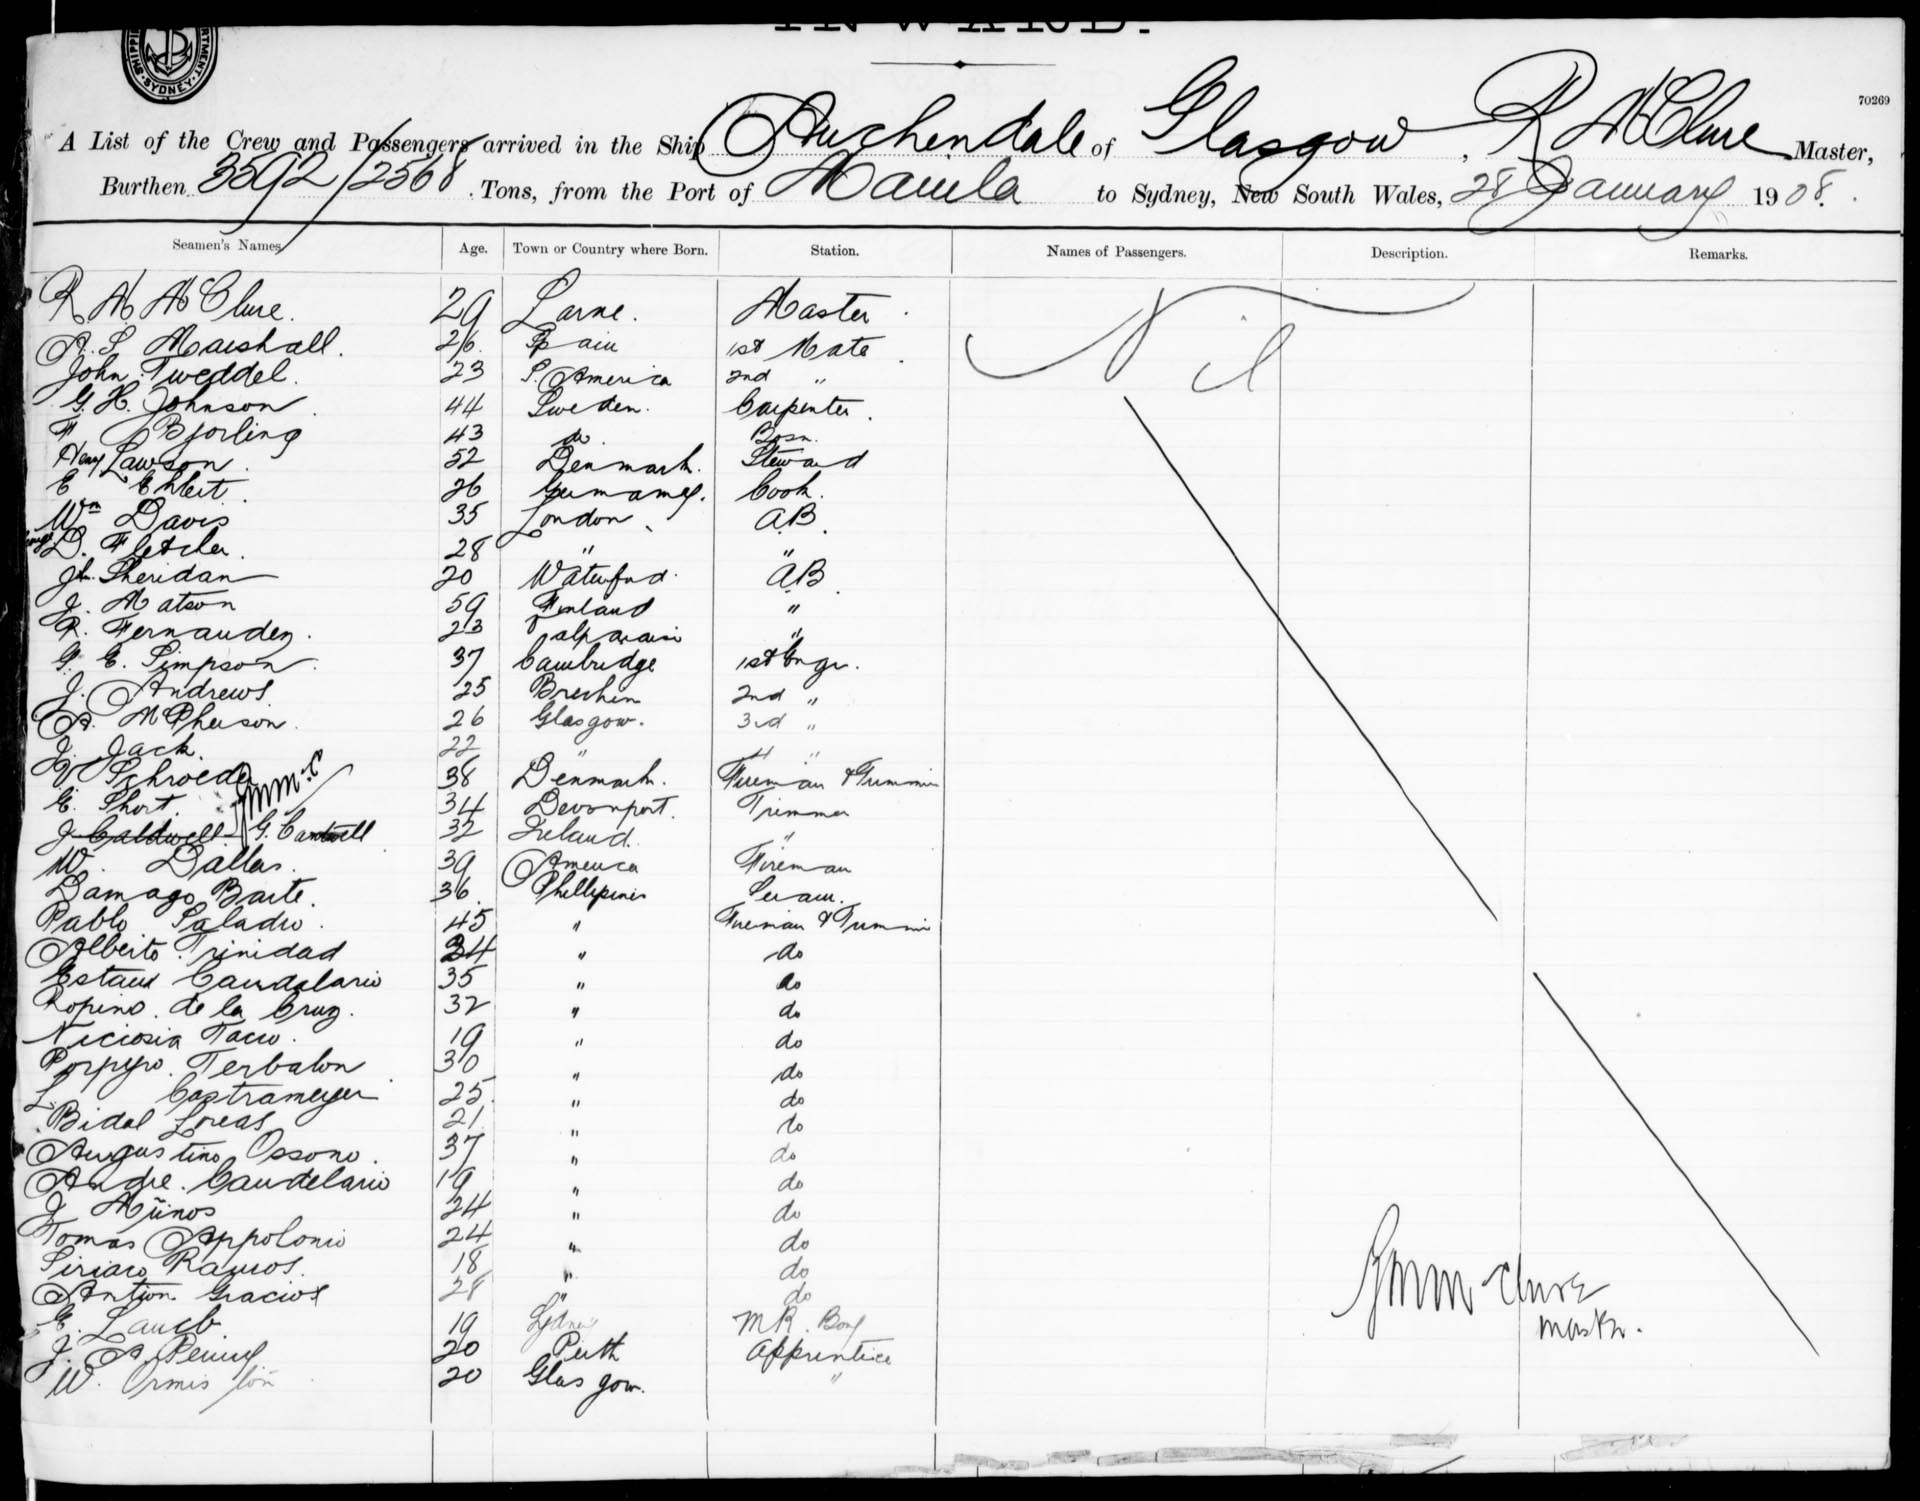 INWARD.
SHIPPING DEPARTMENT SYDNEY
70269
A List of the Crew and Passengers arrived in the Ship Auchendale of Glasgow, R McClure Master,
Burthen 3592/2568 Tons, from the Port of Manila to Sydney, New South Wales, 28 January 1908.
Seamen's Names. Age. Town or Country where Born. Station. Names of Passengers. Description. Remarks.
R M McClure. 29 Larne. Master Nil
A. S Marshall. 26. Spain 1st Mate
John Tweddel. 23 S. America 2nd "
G. H. Johnson 44 Sweden. Carpenter.
F Bjorling 43 do. Bosn.
Henry Lawson. 52 Denmark. Steward
E Ehlert. 26 Germany. Cook.
Wm Davis 35 London. A.B.
George D. Fletcher. 28 " "
Jn. Sheridan 20 Waterford. A.B.
J. Matson 59 Finland "
R. Fernandez. 23 Valparaiso "
G. E. Simpson. 37 Cambridge 1st Engr.
J. Andrews. 25 Brechin 2nd "
A. McPherson. 26 Glasgow. 3rd "
J. Jack. 22 " 4 "
V Schroeder 38 Denmark. Fireman & Trimmer
E. Short. 34 Devonport. Trimmer
J Caldwell G. Cantwell 32 Ireland. "
W. Dallas. 39 America Fireman
Damago Barte. 36. Phillipines Servant.
Pablo Saladio. 45 " Fireman & Trimmer
Alberto Trinidad 34 " do
Candalario 35 " do
de la Cruz. 32 " do
19 " do
Terbalon 30 " do
L. Castrameyer 25. " do
Bidal Loreas 21 " do
Augustino Ossono. 37 " do
Andre. Candelario 19 " do
J Muños 24 " do
Tomas Appolonio 24 " do
Siriaco Ramos. 18 " do
Gracios 28 " do
E. 19 Sydney M.R. Boy
J. A. 20 Perth Apprentice
W. Ormiston 20 Glasgow. "
McClure
Master.